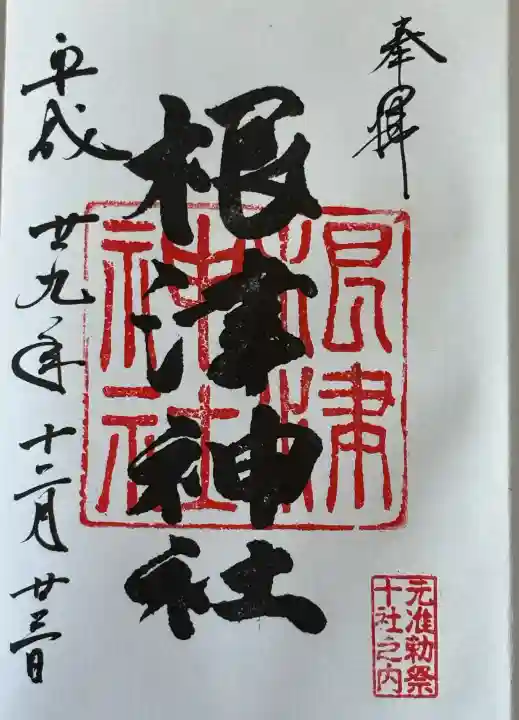 奉拝
根津神社
根津神社
元准勅祭
十社之内
平成廿九年十二月廿三日